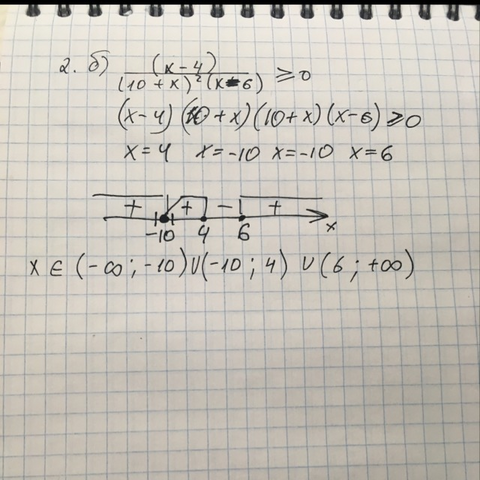 2. б) (x-4) / (10+x)²(x-6) ≥ 0
(x-4)(10+x)(10+x)(x-6) ≥ 0
x=4 x=-10 x=-10 x=6
+ + - +
-10 4 6 x
x ∈ (-∞; -10) ∪ (-10; 4) ∪ (6; +∞)